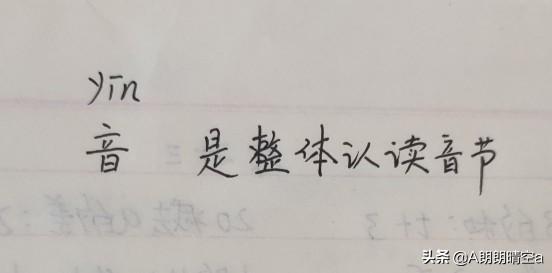 yīn
音 是整体认读音节
头条 @A朗朗晴空a